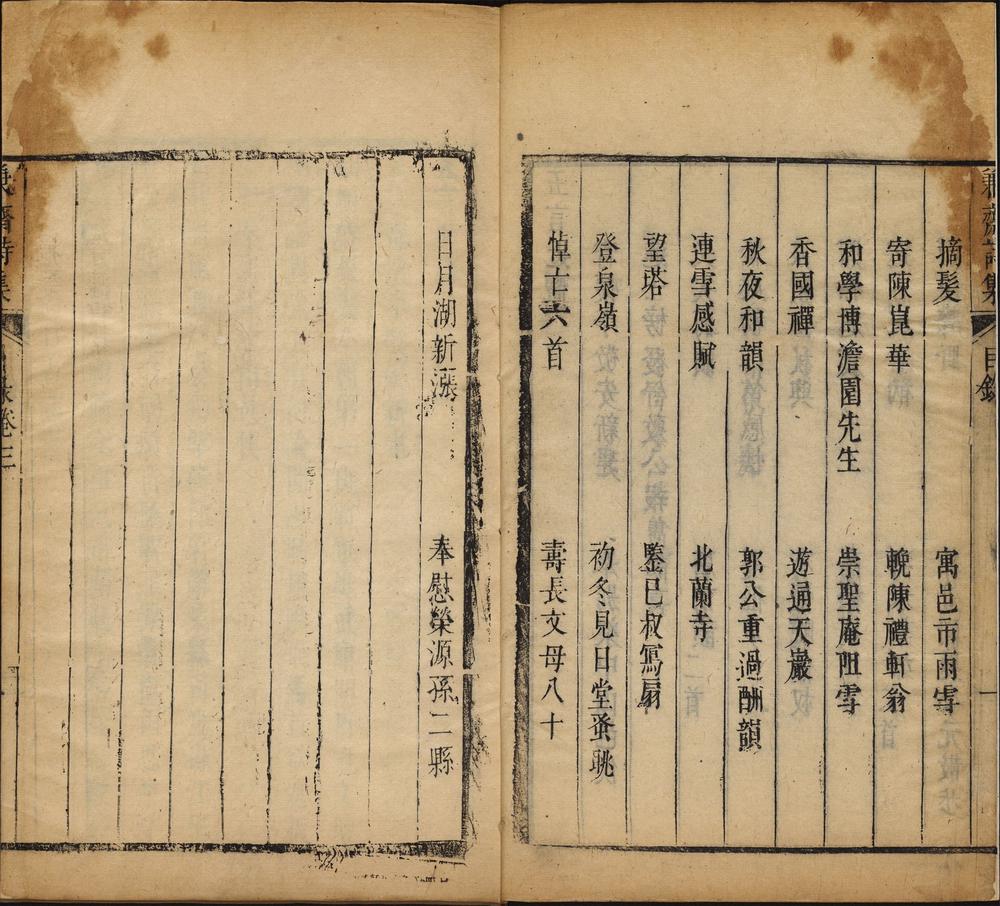 目錄
摘髪
寓邑市雨雪
寄陳崑華
輓陳禮軒翁
和學博澹園先生
崇聖庵阻雪
香國禪
遊通天巖
秋夜和韻
郭公重過酬韻
連雪感賦
北蘭寺
望塔
鑒巳叔寫扇
登泉嶺
初冬見日堂蚤眺
悼亡六首
壽長文母八十
日月湖新漲
奉慰榮源孫二縣
齋詩集
卷三